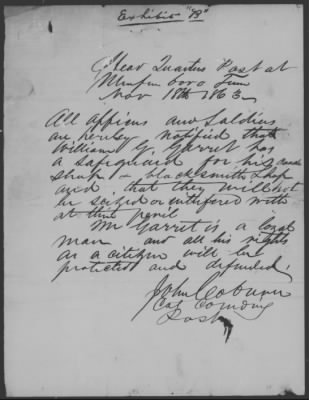 Exhibit "B"
Head Quarters Post at
Murfreesboro Tenn
Nov 18th 1863
All officers and Soldiers
are hereby notified that
William G. Garret has
a safeguard for his
blacksmith Shop
and that they will not
be seized or interfered with
at their peril
Mr Garret is a loyal
man and all his rights
as a citizen will be
protected and defended.
John Coburn
Col Comdng
Post